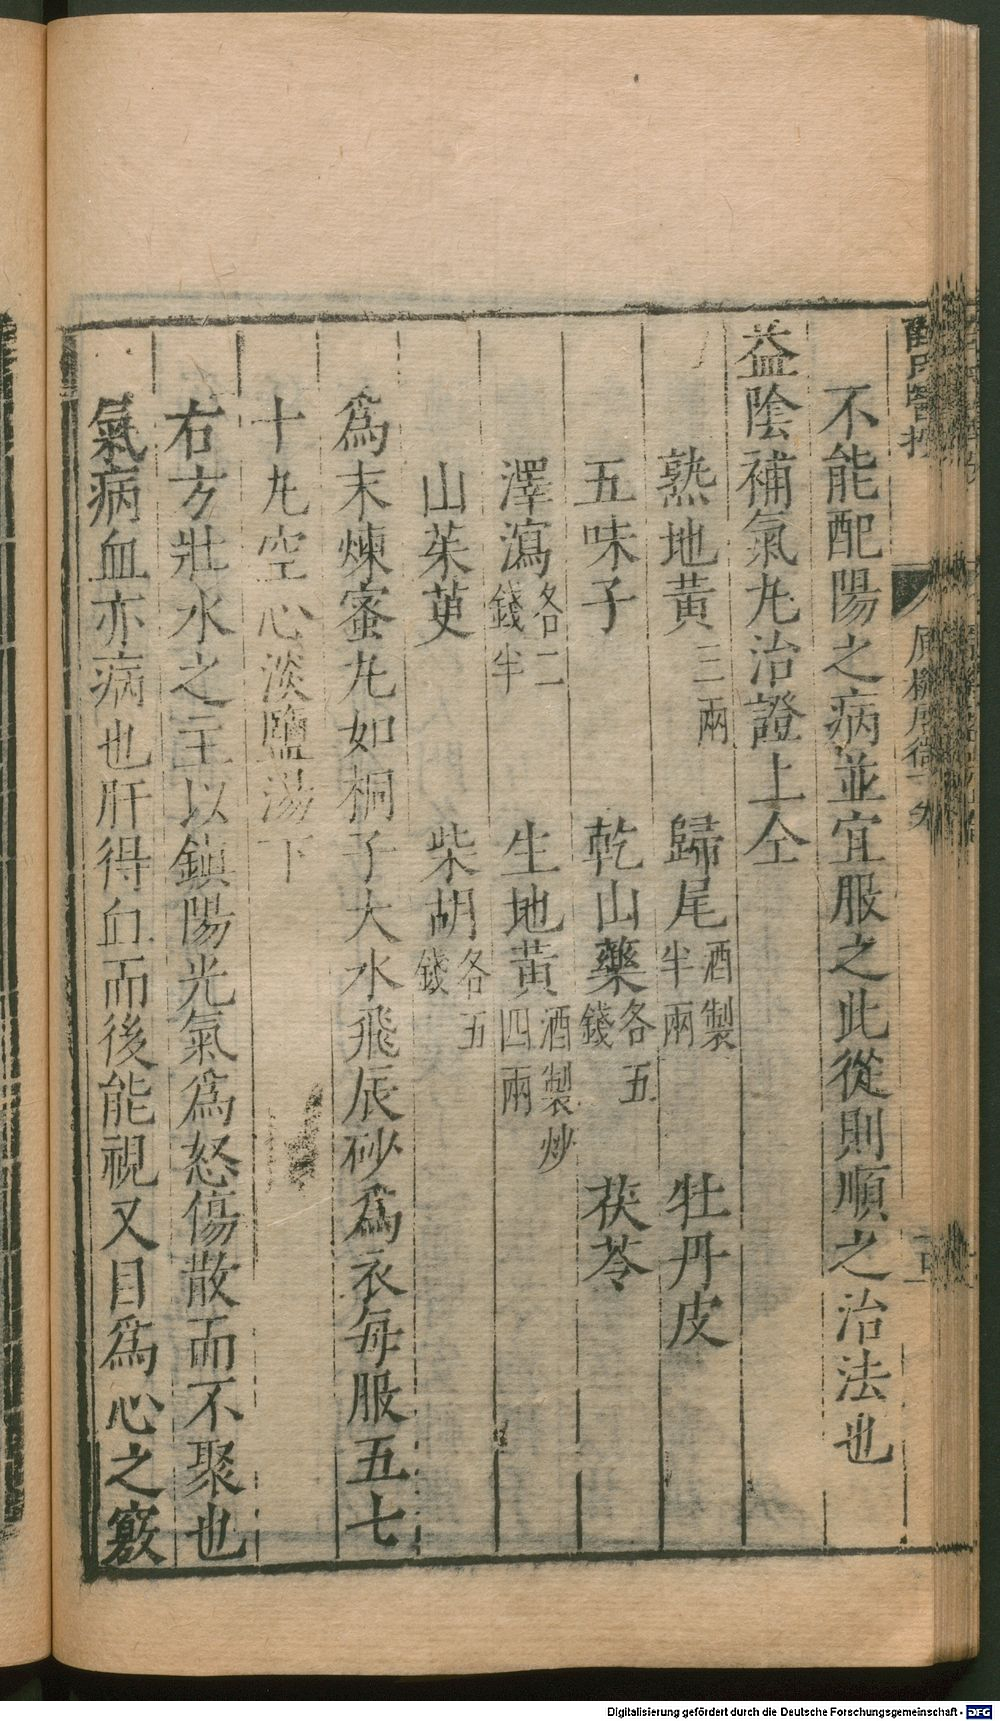 不能配陽之病並宜服之此從則順之治法也
益陰補氣九治證上仝
熟地黃三兩 歸尾酒製半兩 牡丹皮
五味子 乾山藥各五錢 茯苓
澤瀉各二錢半 生地黃酒製炒四兩
山茱萸 柴胡各五錢
為末煉蜜九如桐子大水飛辰砂為衣每服五七
十九空心淡鹽湯下
右方壯水之主以鎮陽光氣為怒傷散而不聚也
氣病血亦病也肝得血而後能視又目為心之竅
Digitalisierung gefördert durch die Deutsche Forschungsgemeinschaft - DFG